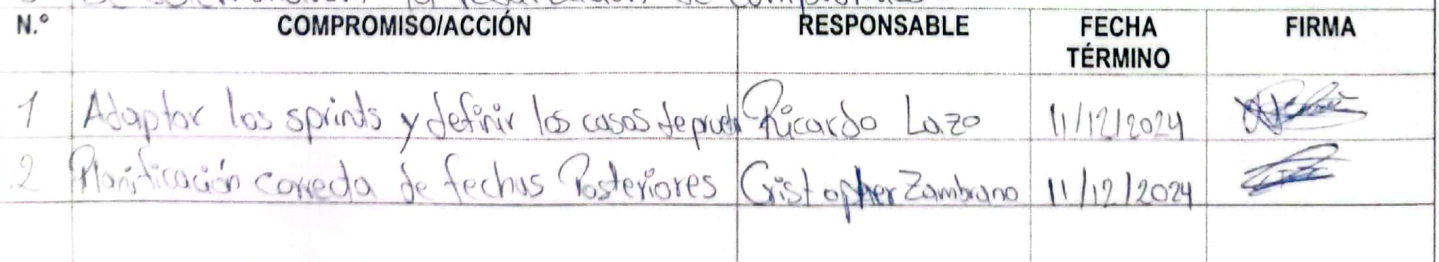 N.° COMPROMISO/ACCIÓN RESPONSABLE FECHA TÉRMINO FIRMA
1 Adaptar los sprints y definir los casos de prueb Ricardo Lazo 11/12/2024
2 Planificación correcta de fechas Posteriores Cristopher Zambrano 11/12/2024